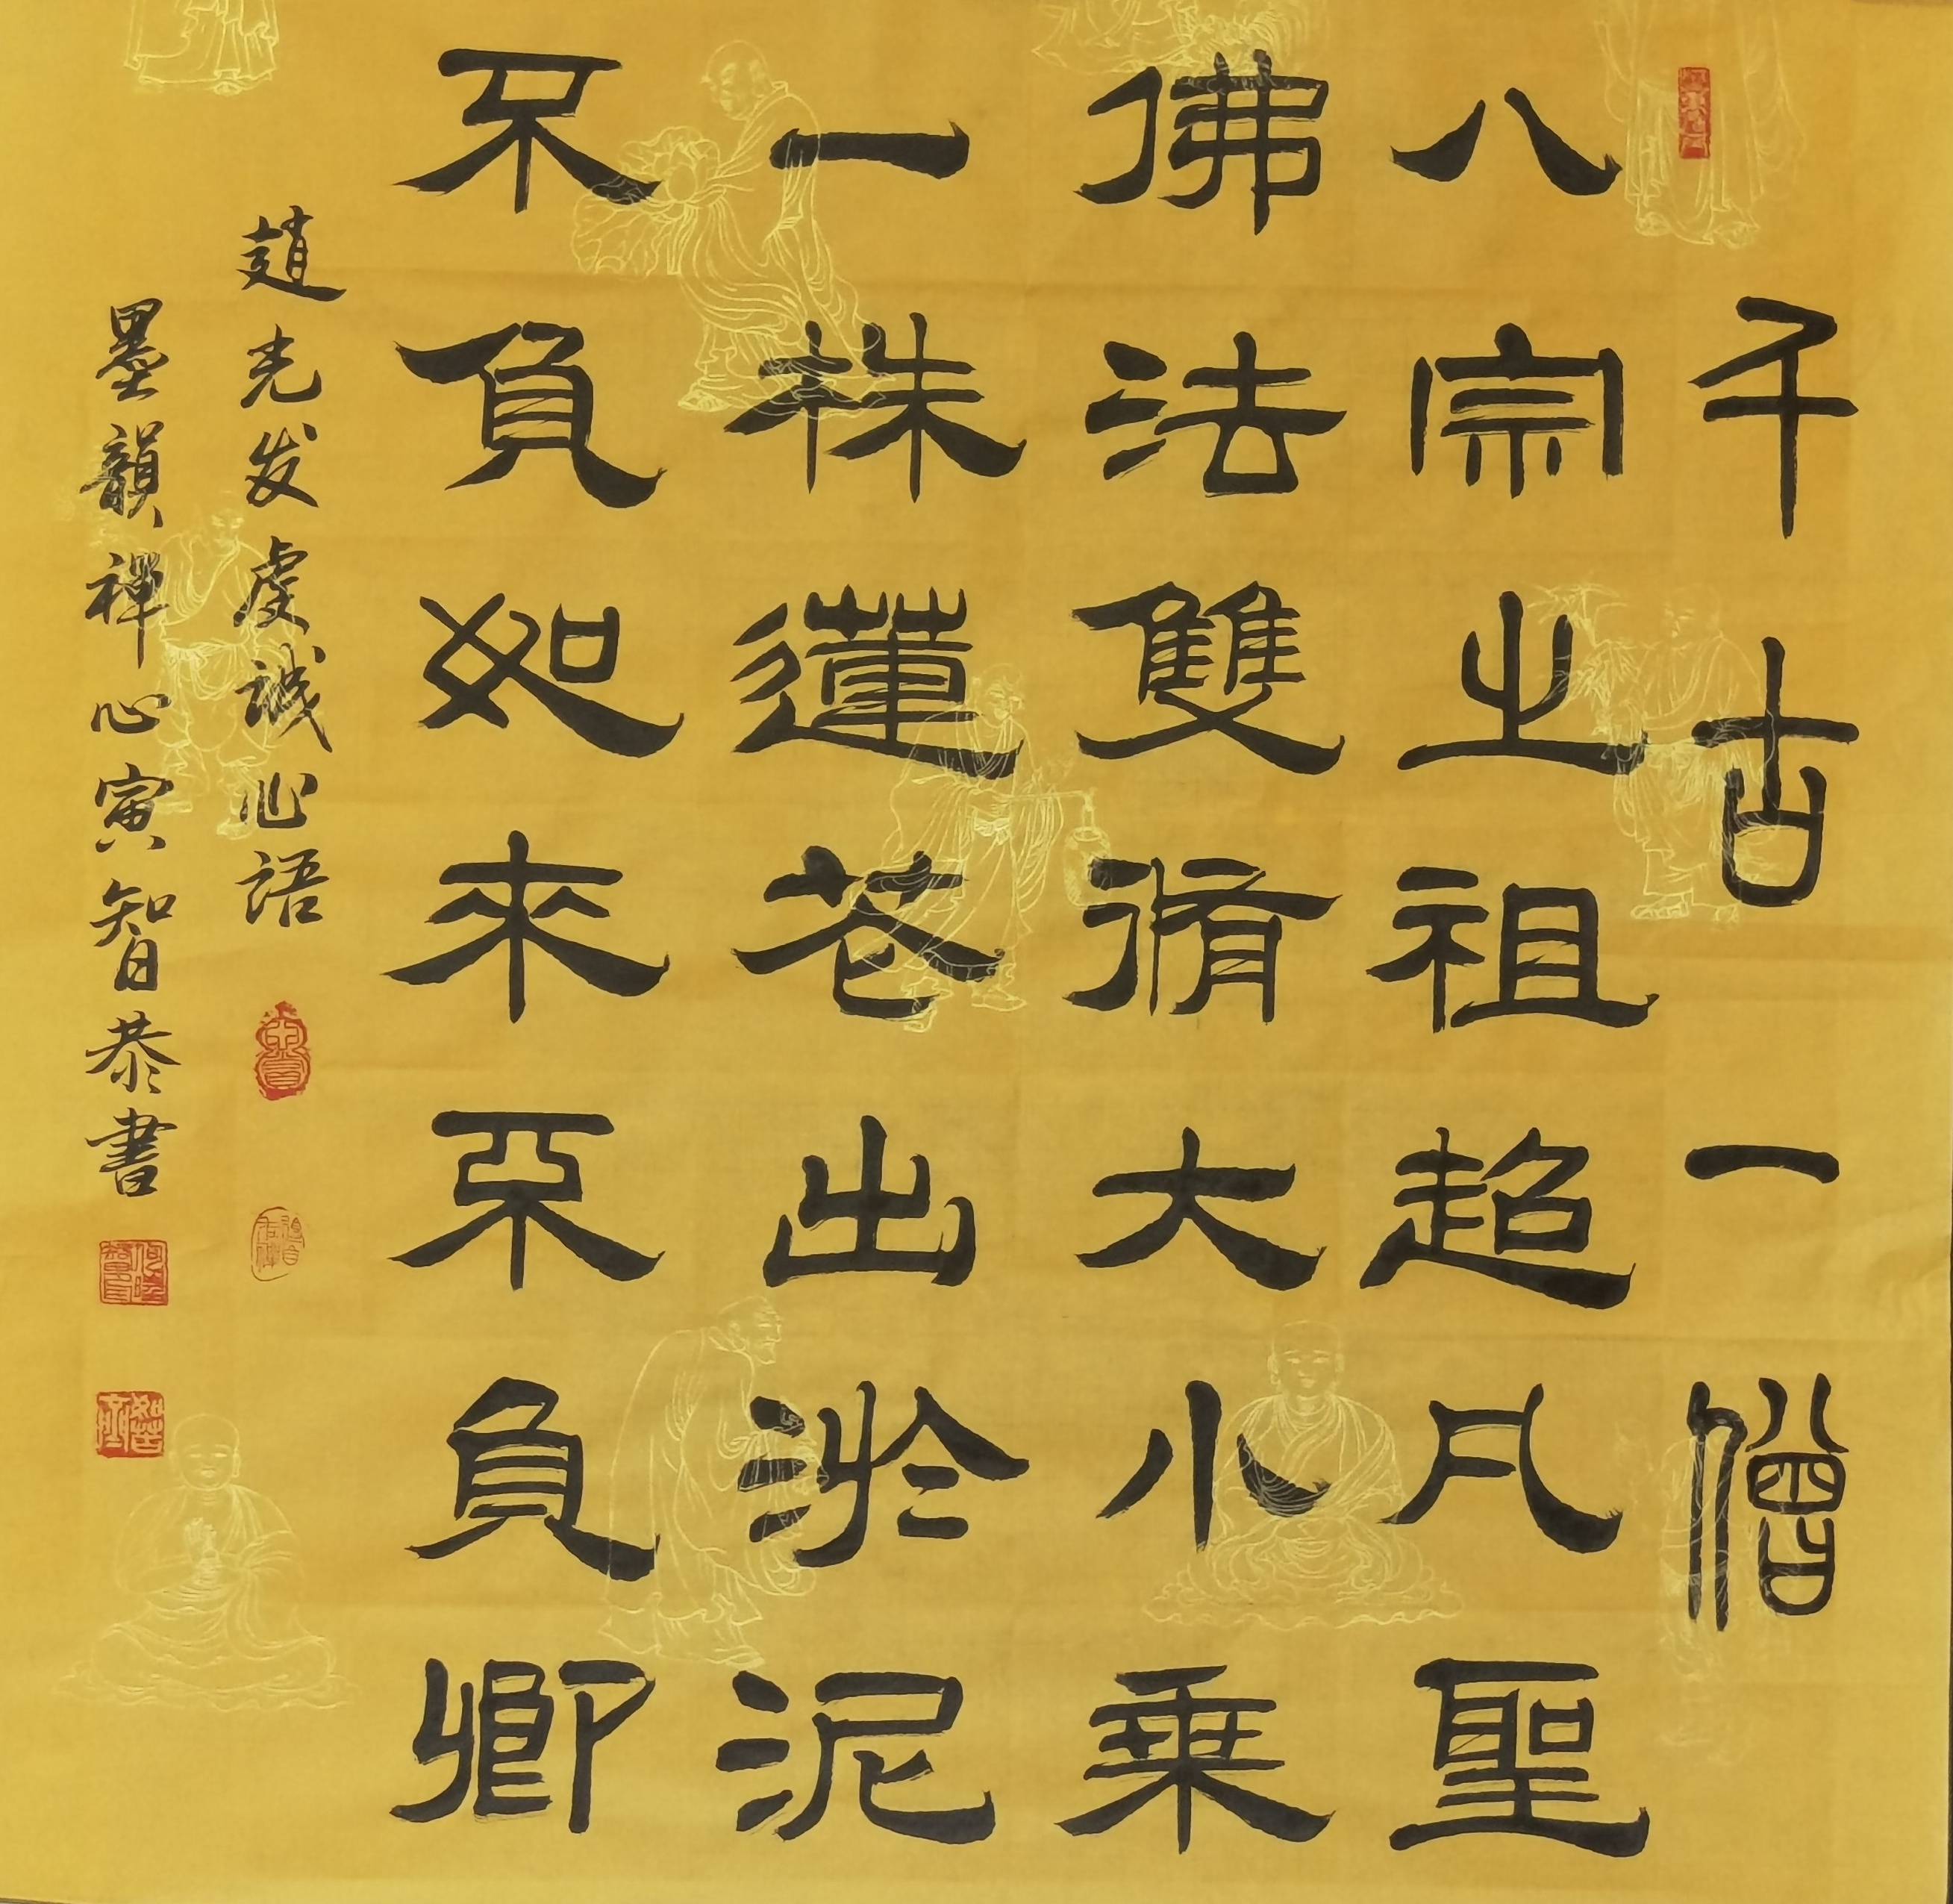 千古一僧
八宗之祖超凡聖
佛法雙脩大小乗
一株蓮花出淤泥
不負如來不負卿
趙光发虔诚心語
墨韻禪心寅智恭書